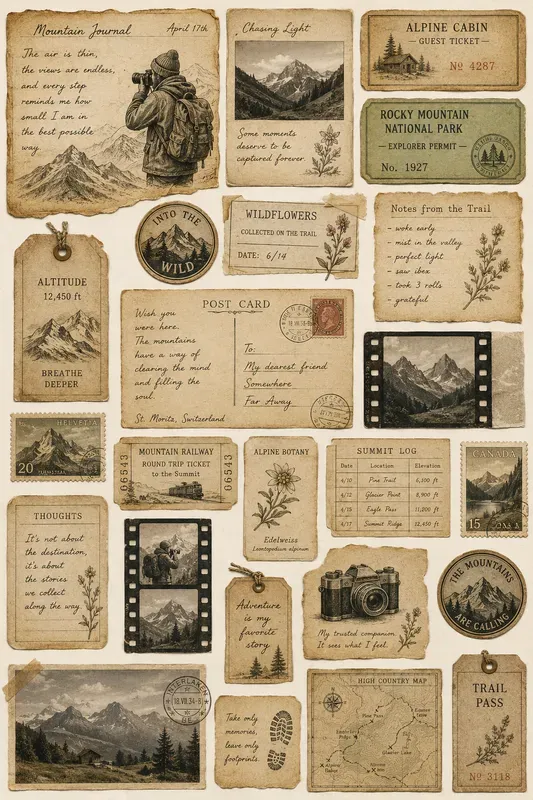 Mountain Journal
April 17th
The air is thin,
the views are endless,
and every step
reminds me how
small I am in
the best possible
way.
Chasing Light
Some moments
deserve to be
captured forever.
ALPINE CABIN
— GUEST TICKET —
Nº 4287
ROCKY MOUNTAIN
NATIONAL PARK
— EXPLORER PERMIT —
No. 1927
ALTITUDE
12,450 ft
BREATHE
DEEPER
INTO THE
WILD
WILDFLOWERS
COLLECTED ON THE TRAIL
DATE: 6/14
Notes from the Trail
- woke early
- mist in the valley
- perfect light
- saw ibex
- took 3 rolls
- grateful
POST CARD
Wish you
were here.
The mountains
have a way of
clearing the mind
and filling the
soul.
St. Moritz, Switzerland
To:
My dearest friend
Somewhere
Far Away
HELVETIA
20
MOUNTAIN RAILWAY
ROUND TRIP TICKET
to the Summit
06543
06543
ALPINE BOTANY
Edelweiss
Leontopodium alpinum
SUMMIT LOG
Date Location Elevation
4/10 Pine Trail 6,300 ft
4/12 Glacier Point 8,900 ft
4/16 Eagle Pass 11,200 ft
4/17 Summit Ridge 12,450 ft
CANADA
15
THOUGHTS
It's not about
the destination,
it's about
the stories
we collect
along the way.
Adventure
is my
favorite
story.
My trusted companion
It sees what I feel.
THE MOUNTAINS
ARE CALLING
INTERLAKEN
18.VII.34-8
BE
Take only
memories,
leave only
footprints.
HIGH COUNTRY MAP
Pine Pass
Glacier Lake
TRAIL
PASS
Nº 3118